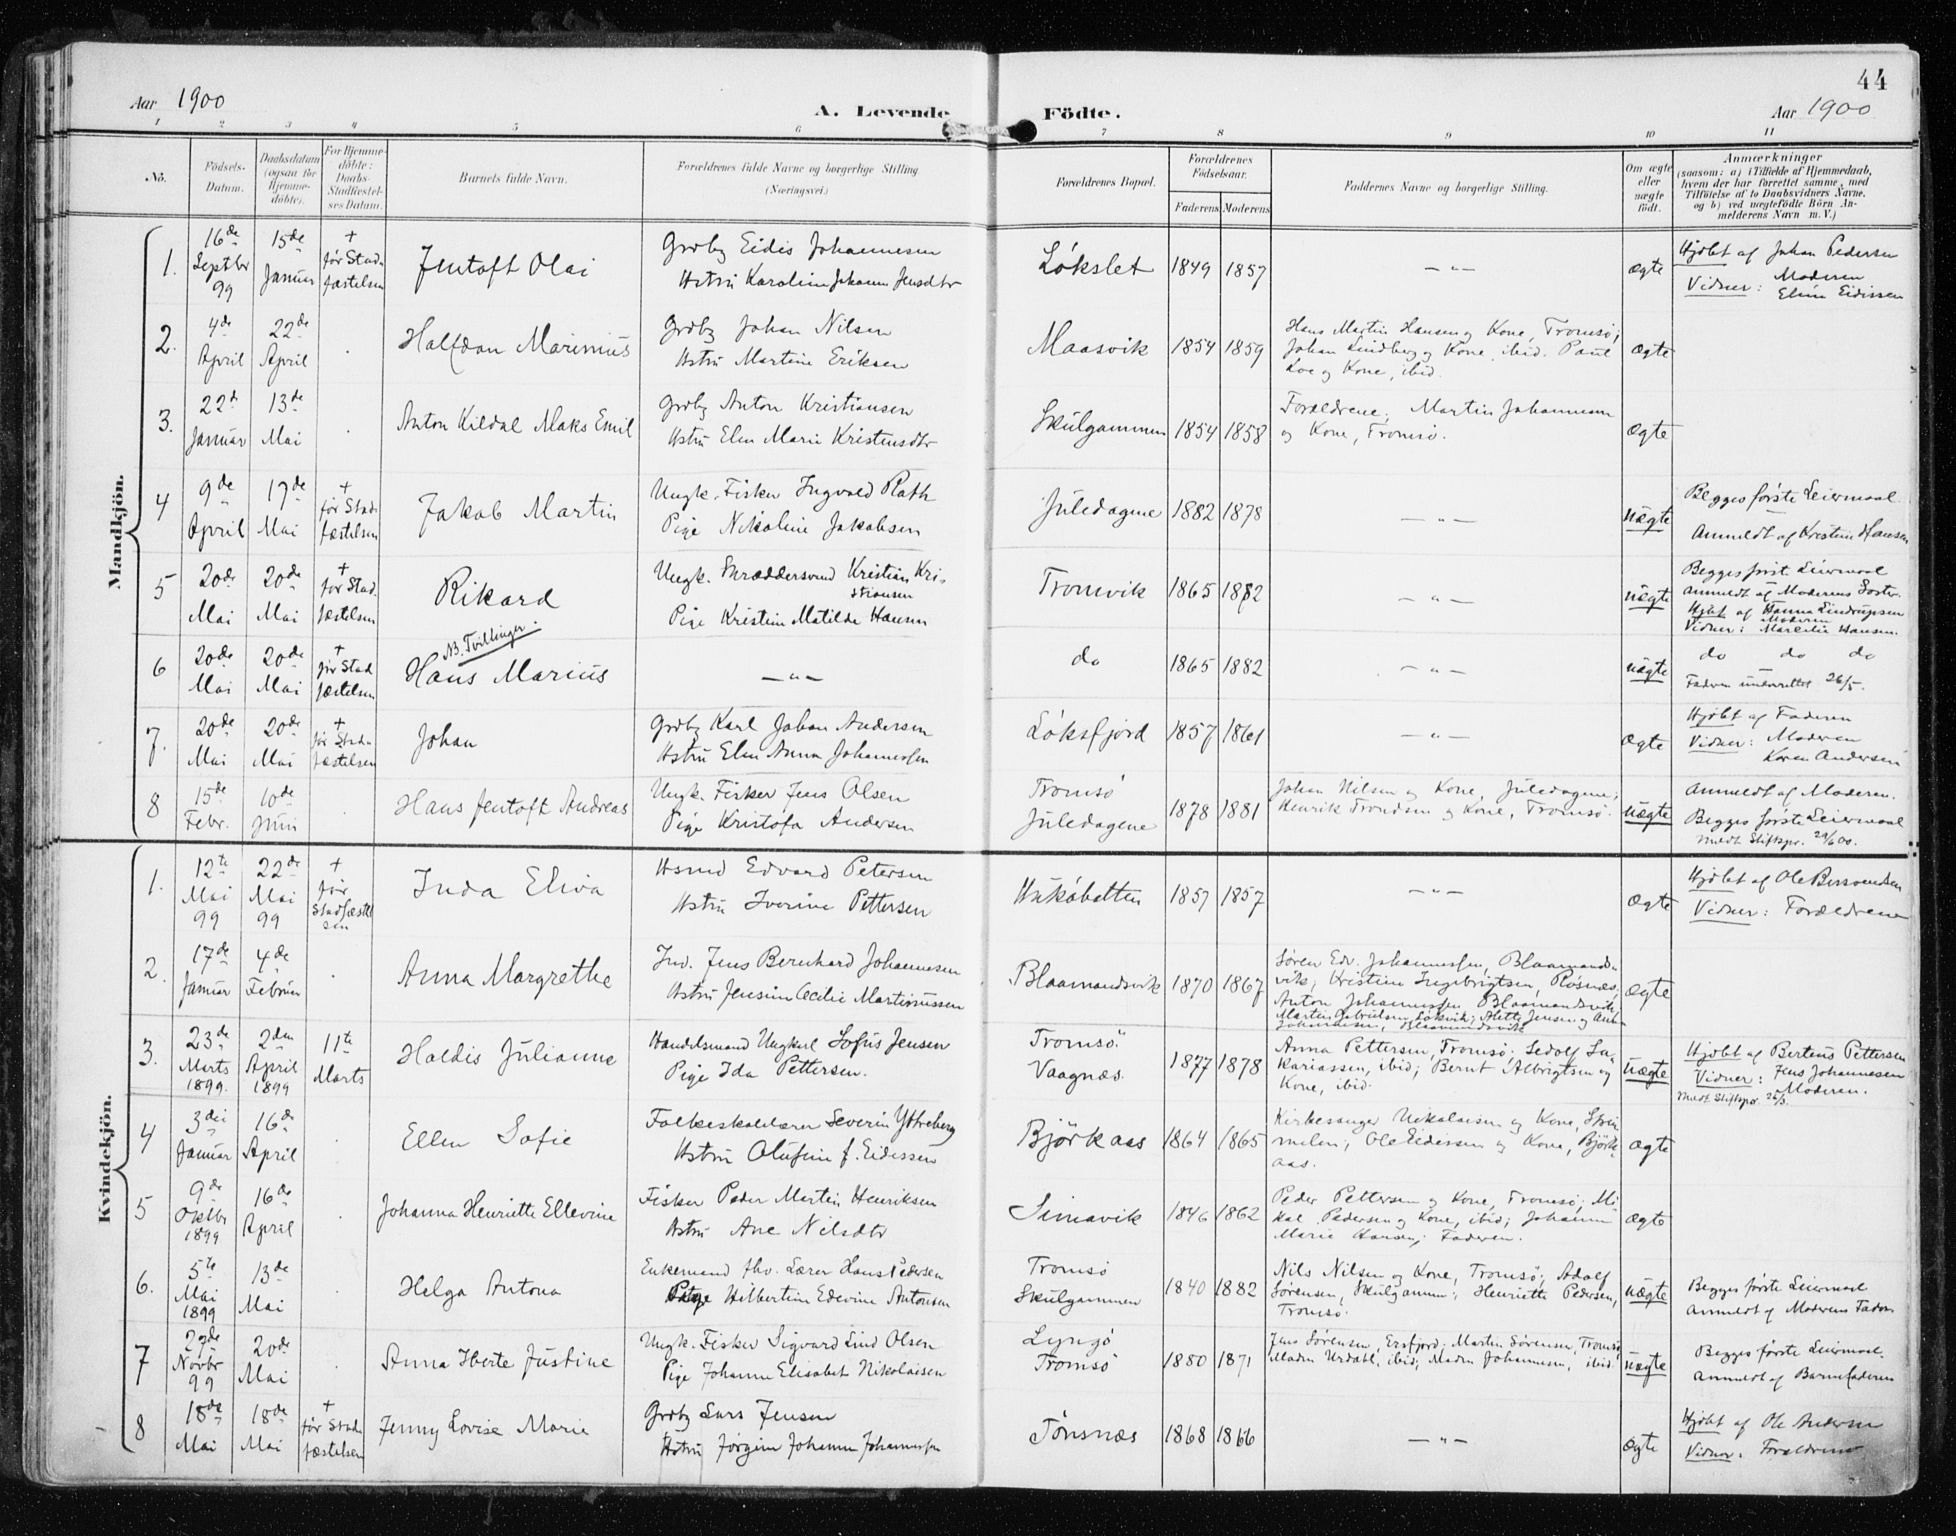 44
Aar 1900
A. Levende Födte.
Aar 1900
1 2 3 4 5 6 7 8 9 10 11
Nö.
Födsels-Datum.
Daabsdatum (ogsaa for Hjemme-döbte).
For Hjemme-döbte: Daabs-Stadfæstel-ses Datum.
Barnets fulde Navn.
Forældrenes fulde Navne og borgerlige Stilling (Næringsvei.)
Forældrenes Bopæl.
Forældrenes Födselsaar.
Faderens Moderens
Faddernes Navne og borgerlige Stilling.
Om ægte eller uægte födt.
Anmærkninger
(saasom: a) i Tilfælde af Hjemmedaab,
hvem der har forrettet samme, med
Tilföielse af to Daabsvidners Navne,
og b) ved uægtefödte Börn An-
melderens Navn m. V.)
Mandkjön.
1. 16de Septbr 99 15de Januar + før Stadfæstelsen Jentoft Olai
Grdbr Eidis Johannesen
Hstru Karoline Johanna Jensdtr
Løkslet 1849 1857 — " — ægte
Hjdbt af Johan Pedersen
Vidner: Moderen
Eline Eidissen
2. 4de April 22de April Halfdan Marinius
Grdbr Johan Nilsen
Hstru Martine Eriksen
Maasvik 1854 1859
Hans Martin Hansen og Kone, Tromsø;
Johan Lindberg og Kone, ibid. Paul
Koe og Kone, ibid.
ægte
3. 22de Januar 13de Mai Anton Kildal Maks Emil
Grdbr Anton Kristiansen
Hstru Elen Marie Kristensdtr
Skulgammen 1854 1858
Forældrene; Martin Johannesen
og Kone, Tromsø.
ægte
4 9de April 17de Mai + før Stadfæstelsen Jakob Martin
Ungk. Fisker Ingvald Rath
Pige Nikoline Jakobsen
Juledagene 1882 1878 — " — uægte
Begges første Leiermaal
Anmeldt af Kristine Hansen
5 20de Mai 20de Mai + før Stadfæstelsen Rikard
Ungk. Skræddersvend Kristian Kristiansen
Pige Kristine Matilde Hansen
Tromvik 1865 1882 — " — uægte
Begges første Leiermaal
Anmeldt af Moderens Søster.
Hjdbt af Hanna Lindrupsen
Vidner: Moderen
Hansen.
NB. Tvillinger.
6 20de Mai 20de Mai + før Stadfæstelsen Hans Marius — " —
do 1865 1882 — " — uægte
do do do
Faderen underrettet 26/5.
7. 20de Mai 20de Mai + før Stadfæstelsen Johan
Grdbr Karl Johan Andersen
Hstru Elen Anna Johannessen
Løksfjord 1857 1861 — " — ægte
Hjdbt af Faderen
Vidner: Moderen
Karen Andersen
8 15de Febr. 10de Juni Hans Jentoft Andreas
Ungk. Fisker Jens Olsen
Pige Kristofa Andersen
Tromsø
Juledagene 1878 1881
Johan Nilsen og Kone, Juledagene;
Henrik Trondsen og Kone, Tromsø.
uægte
Anmeldt af Moderen.
Begges første Leiermaal
Meldt Stiftspr. 29/6 00.
Kvindekjön.
1. 12te Mai 99 22de Mai 99 + før Stadfæstelsen Inda Eliva
Hsmd Edvard Petersen
Hstru Iverine Pettersen
1857 1857 — " — ægte
Hjdbt af Ole
Vidner: Forældrene
2. 17de Januar 4de Februar Anna Margrethe
Inv. Jens Bernhard Johannesen
Hstru Jensine Cecilie Martinussen
Blaamandsvik 1870 1867
Søren Edv. Johannessen, Blaamands-
vik; Kristine Ingebrigtsen, Røsnæs,
Anton Johannessen Blaamandsvik,
Martin Gabrielsen, Løksvik; Alette Jensen og
Johannesen, Blaamandsvik
ægte
3. 23de Marts 1899. 2den April 1899 11te Marts Haldis Julianne
Handelsmand Ungkarl Sofus Jensen
Pige Ida Pettersen.
Tromsø
Vaagnæs. 1877 1878
Anna Pettersen, Tromsø; Sedolf Za-
kariassen, ibid; Bernt Albrigtsen og
Kone, ibid.
uægte
Hjdbt af Berteus Pettersen
Vidner: Jens Johannesen
Moderen.
Meldt Stiftspr. 26/3.
4 3die Januar 16de April Ellen Sofie
Folkeskolelærer Severin Ytreberg
Hstru Olufine f. Eidissen
Björkaas 1864 1865
Kirkesanger Nikolaisen og Kone,
Ole Eidissen og Kone, Björk-
aas.
ægte
5 9de Oktbr 1899 16de April Johanna Henriette Ellevine
Fisker Peder Martin Henriksen
Hstru Ane Nilsdtr
Simavik 1846 1862
Peder Pettersen og Kone, Tromsø; Mi-
kal Pedersen og Kone, ibid; Johanna
Marie Hansen; Faderen.
ægte
6. 5te Mai 1899 13de Mai Helga Antona
Enkemand fhv. Lærer Hans Pedersen
Pige Hilbertine Edevine Antonsen
Tromsø
Skulgammen 1840 1882
Nils Nilsen og Kone, Tromsø; Adolf
Sørensen, Skulgammen; Henriette Pedersen,
Tromsø.
uægte
Begges første Leiermaal
Anmeldt af Moderens Fader
7 29de Novbr 99 20de Mai Anna Iberte Justine
Ungk. Fisker Sigvard Lind Olsen
Pige Johanna Elisabet Nikolaisen
Lyngø
Tromsø 1880 1871
Jens Sørensen, Ersfjord; Martin Sørensen, Tromsø;
Madm Urdahl, ibid; Madm Johannesen, ibid
uægte
Begges første Leiermaal.
Anmeldt af Barnefaderen
8 18de Mai 18de Mai + før Stadfæstelsen Jenny Lovise Marie
Grdbr Lars Jensen
Hstru Jørgine Johanna Johannessen
Tønsnæs 1868 1866 — " — ægte
Hjdbt af Ole Andersen
Vidner: Forældrene